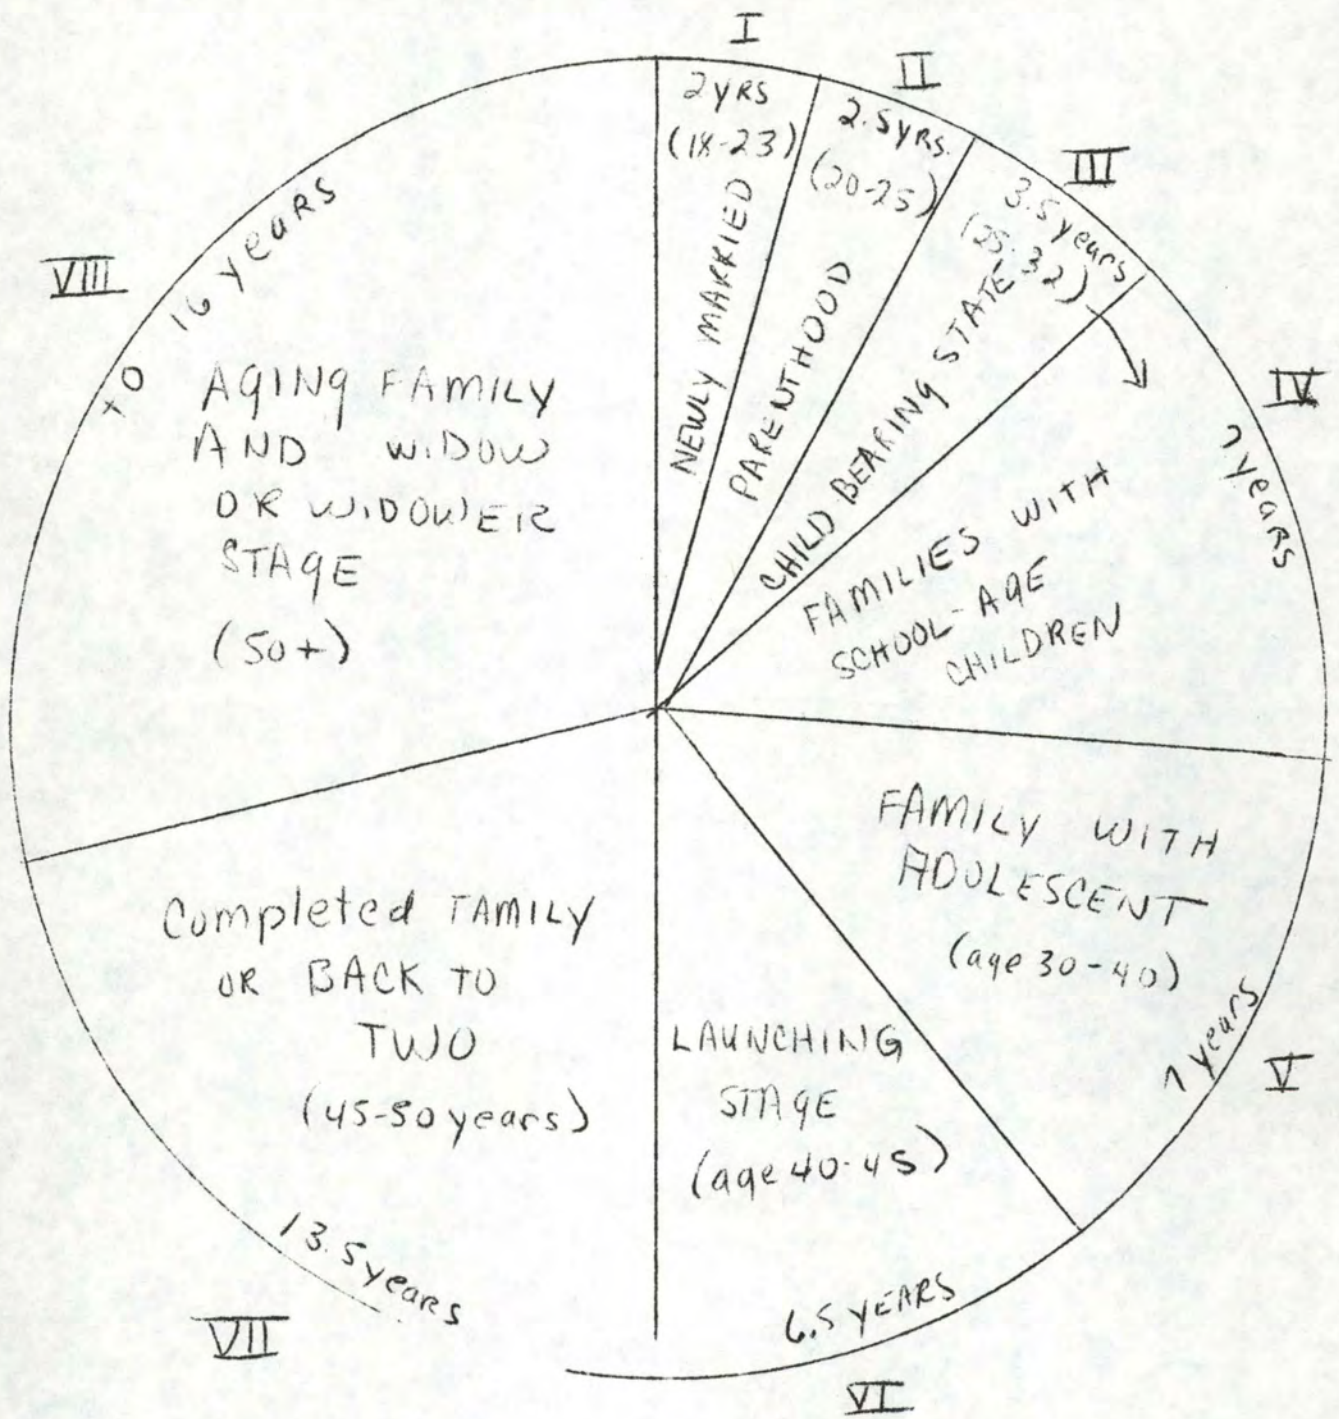 I
2 YRS
(18-23)
NEWLY MARRIED
II
2.5 YRS.
(20-25)
PARENTHOOD
III
3.5 years
(25-32)
CHILD BEARING STATE
IV
7 years
FAMILIES WITH
SCHOOL-AGE
CHILDREN
FAMILY WITH
ADOLESCENT
(age 30-40)
7 years
V
LAUNCHING
STAGE
(age 40-45)
6.5 YEARS
VI
Completed FAMILY
OR BACK TO
TWO
(45-50 years)
13.5 years
VII
VIII
16 years
AGING FAMILY
AND WIDOW
OR WIDOWER
STAGE
(50+)